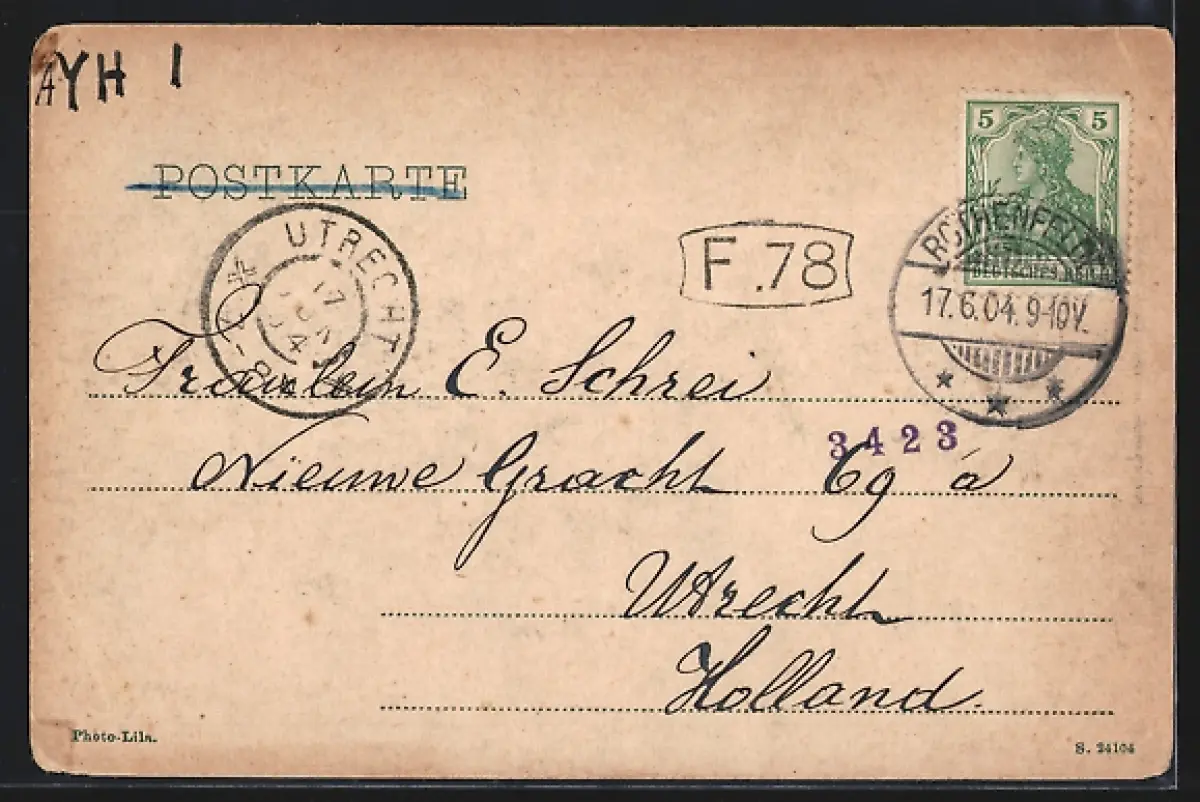 AYH 1
POSTKARTE
5 5
DEUTSCHES REICH
ROTHENFELDE
17.6.04. 9-10V.
UTRECHT
17
JUN
04
F.78
Fräulein E. Schrei
3423
Nieuwe Gracht 69 a
Utrecht
Holland.
Photo-Lila.
S. 24104